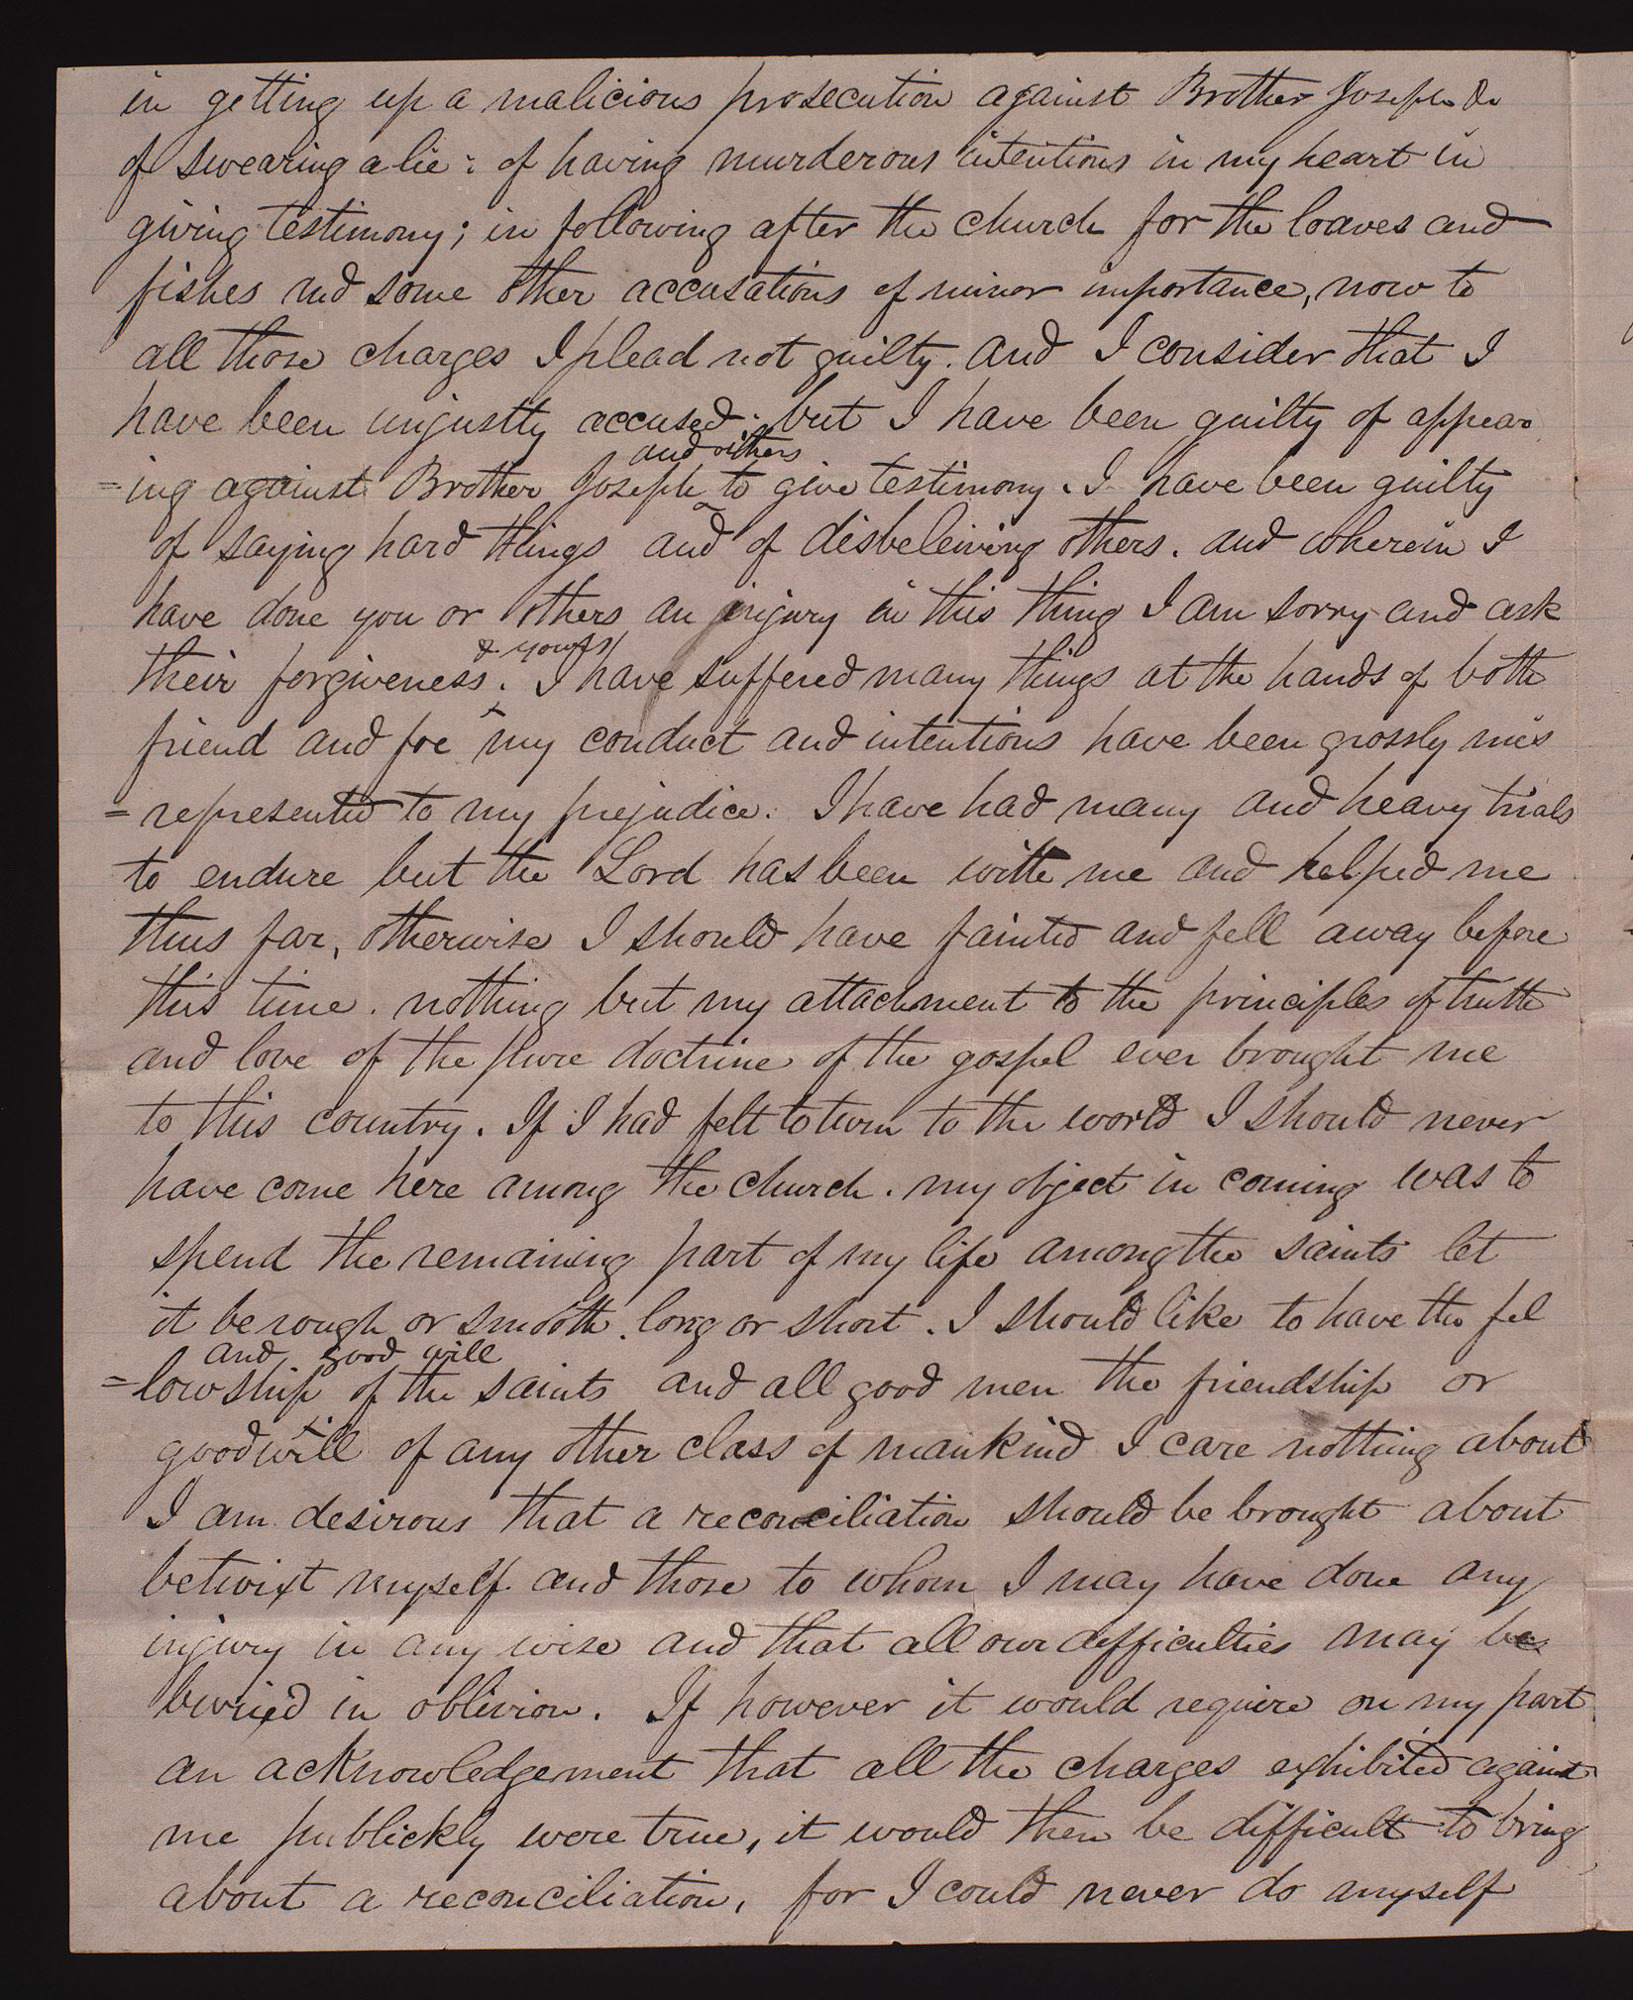 in getting up a malicious prosecution against Brother Joseph &
of swearing a lie: of having murderous intentions in my heart in
giving testimony; in following after the church for the loaves and
fishes and some other accusations of minor importance, now to
all those charges I plead not guilty. and I consider that I
have been unjustly accused; but I have been guilty of appear
and others
=ing against Brother Joseph ^ to give testimony. I have been guilty
of saying hard things and of disbeleiving others. and wherein I
have done you or others an injury in this thing I am sorry and ask
& yours
their forgiveness. ^ I have suffered many things at the hands of both
friend and foe my conduct and intentions have been grossly mis
=represented to my prejudice. I have had many and heavy trials
to endure but the Lord has been with me and helped me
thus far, otherwise I should have fainted and fell away before
this time. nothing but my attachment to the principles of truth
and love of the pure doctrine of the gospel ever brought me
to this country. If I had felt to turn to the world I should never
have come here among the church. my object in coming was to
spend the remaining part of my life among the saints let
it be rough or smooth. long or short. I should like to have the fel
and good will
=lowship of the saints and all good men the friendship or
good will of any other class of mankind I care nothing about
I am desirous that a reconciliation should be brought about
betwixt myself and those to whom I may have done any
injury in any wise and that all our difficulties may be
buried in oblivion. If however it would require on my part
an acknowledgement that all the charges exhibited against
me publickly were true, it would then be difficult to bring
about a reconciliation, for I could never do myself